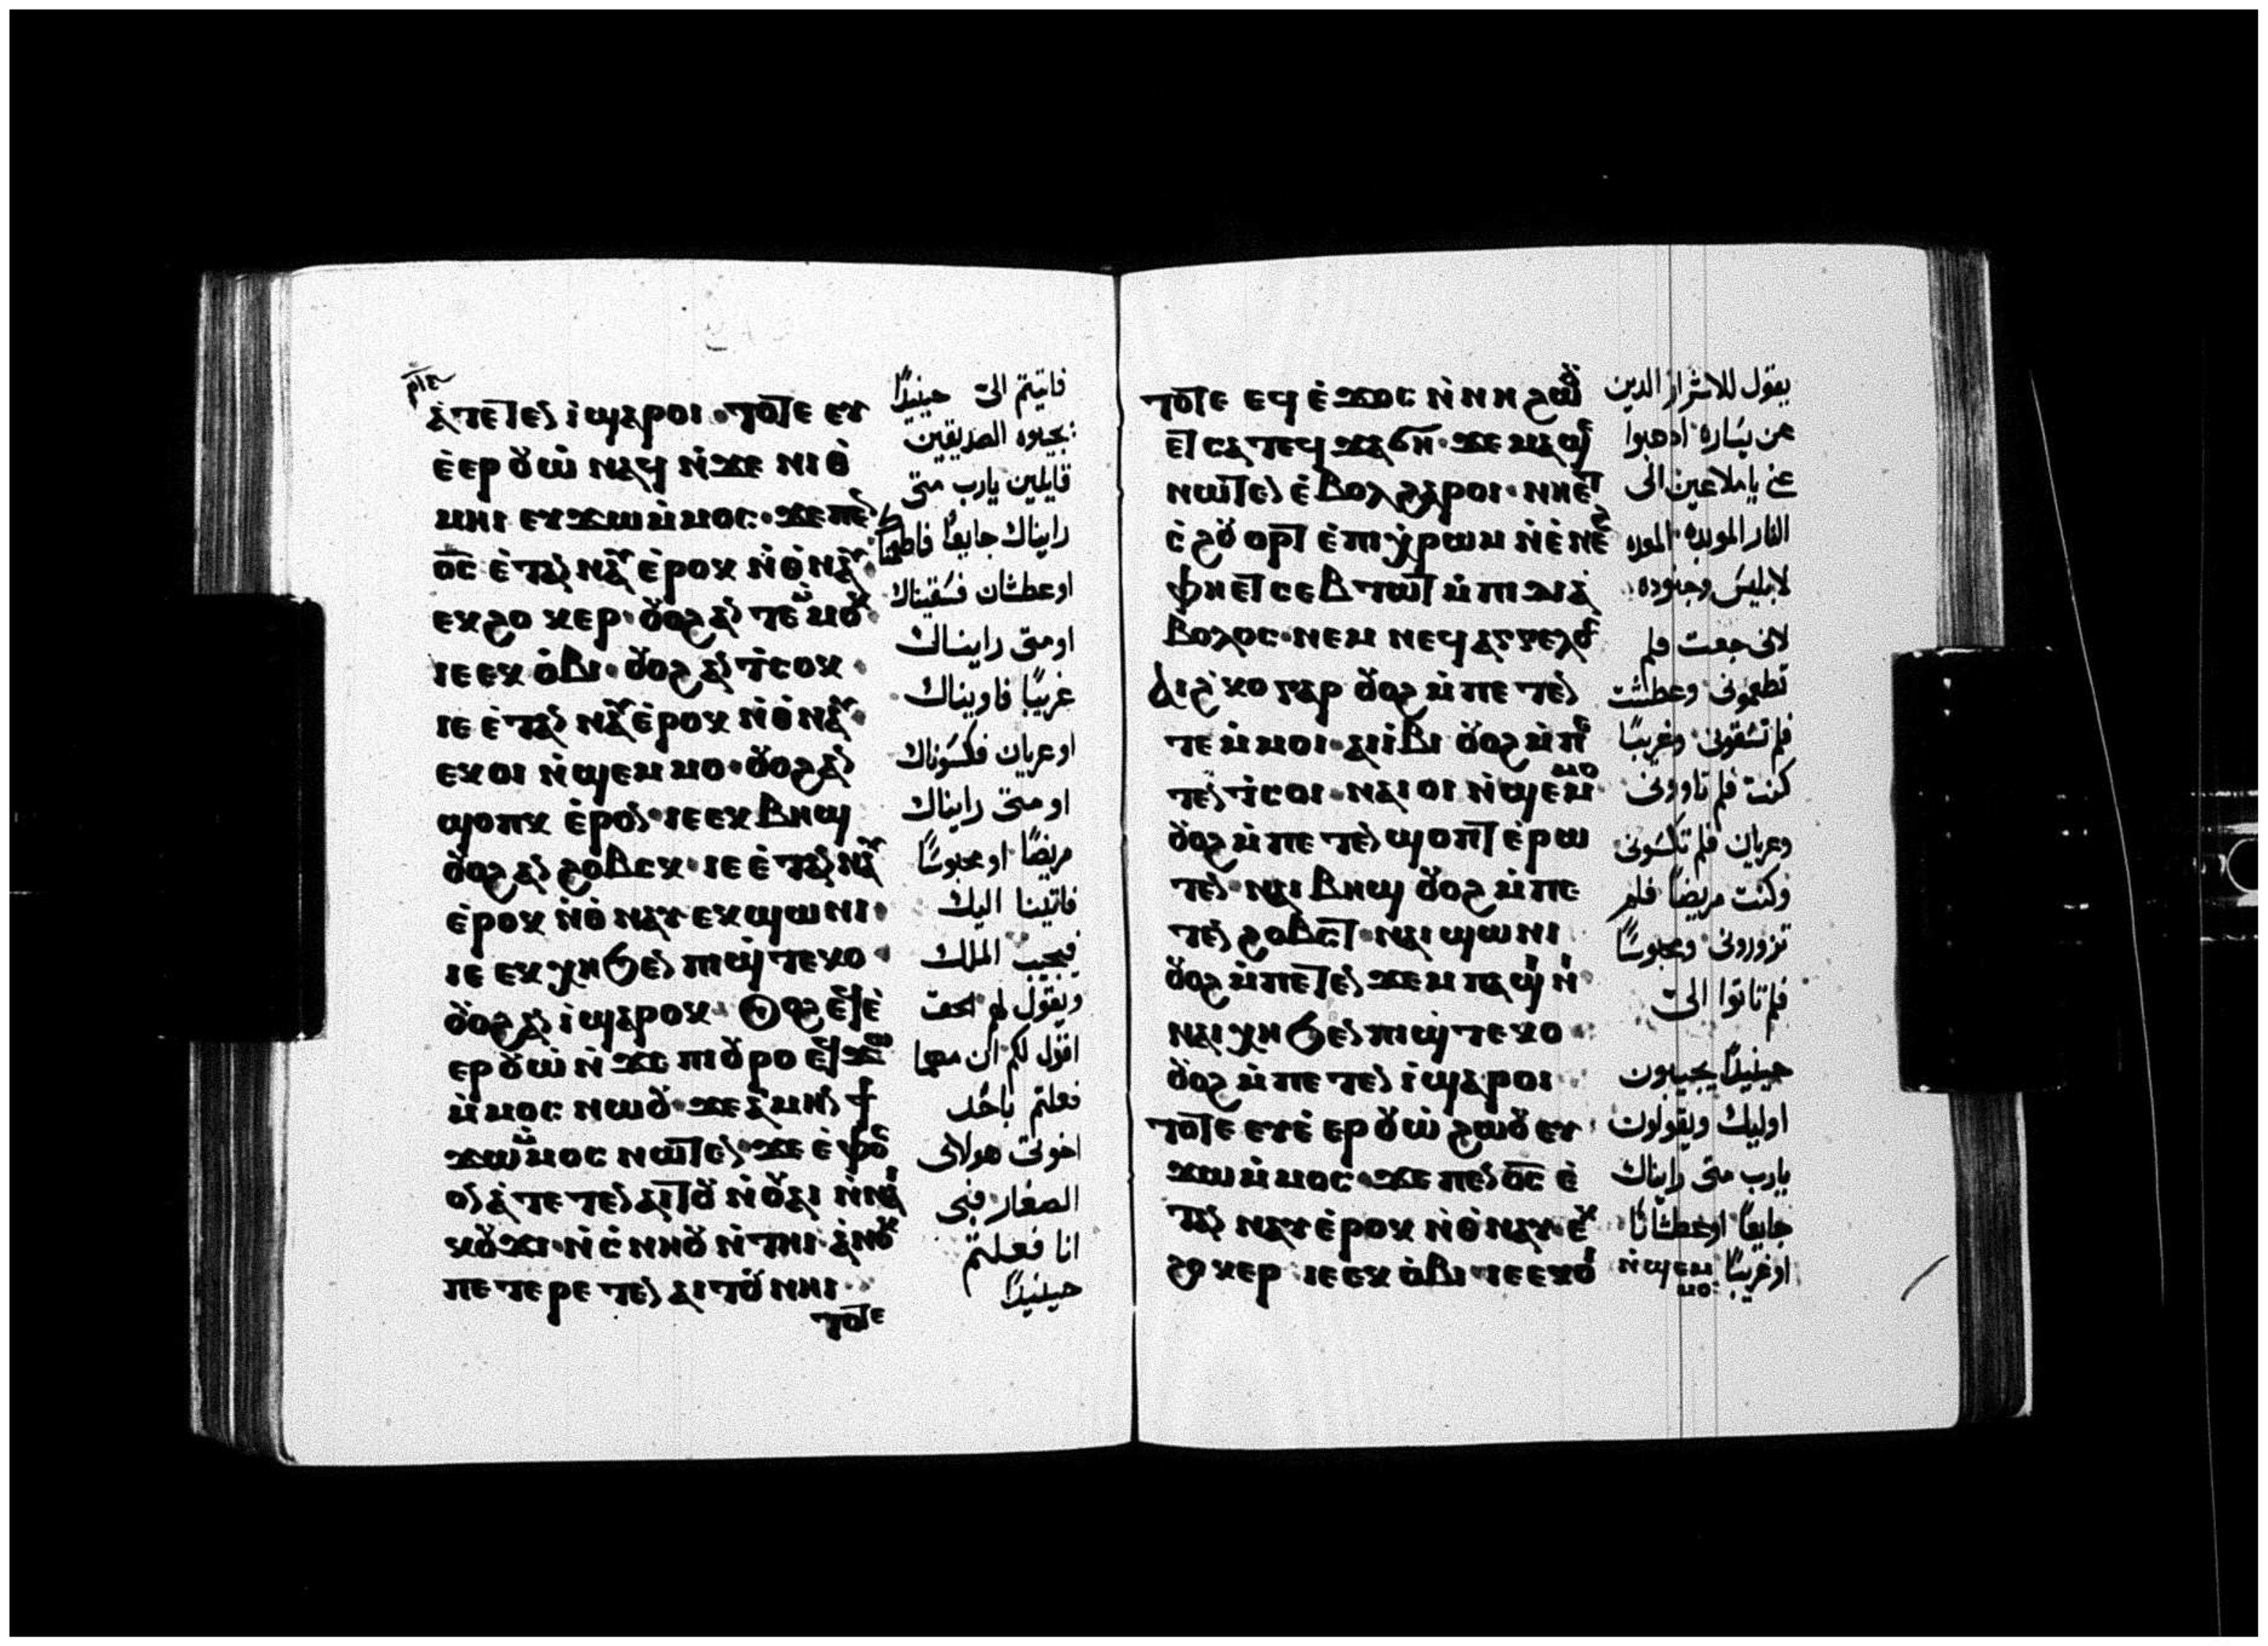 ⲁ̀ⲧⲉⲧⲉⲛ ⲓ̀ ϣⲁⲣⲟⲓ · ⲧⲟⲧⲉ ⲉⲩ
ⲉ̀ⲉⲣ ⲟⲩⲱ̀ ⲛⲁϥ ⲛ̀ϫⲉ ⲛⲓⲑ̀
ⲙⲏⲓ ⲉⲩϫⲱ ⲙ̀ⲙⲟⲥ · ϫⲉ ⲡⲉⲛ
ⲟ̅ⲥ̅ ⲉ̀ⲧⲁⲛ ⲛⲁⲩ ⲉ̀ⲣⲟⲕ ⲛ̀ⲑ̀ⲛⲁⲩ ·
ⲉⲕϩⲟⲕⲉⲣ · ⲟⲩⲟϩ ⲁⲛ ⲧⲉⲙ̀ⲙⲟⲕ ·
ⲓⲉ ⲉⲕ ⲟ̀ⲃⲓ · ⲟⲩⲟϩ ⲁⲛ ⲧ̀ⲥⲟⲕ ·
ⲓⲉ ⲉ̀ⲧⲁⲛ ⲛⲁⲩ ⲉ̀ⲣⲟⲕ ⲛ̀ⲑ̀ⲛⲁⲩ ·
ⲉⲕⲟⲓ ⲛ̀ϣⲉⲙⲙⲟ · ⲟⲩⲟϩ ⲁⲛ
ϣⲟⲡⲕ ⲉ̀ⲣⲟⲛ · ⲓⲉ ⲉⲕ ⲃⲏϣ
ⲟⲩⲟϩ ⲁⲛ ϩⲟⲃⲥⲕ · ⲓⲉ ⲉ̀ⲧⲁⲛ ⲛⲁⲩ
ⲉ̀ⲣⲟⲕ ⲛ̀ⲑ̀ⲛⲁⲩ ⲉⲕϣⲱⲛⲓ ·
ⲓⲉ ⲉⲕ ⲭⲏ ϧⲉⲛ ⲡⲓϣ̀ⲧⲉⲕⲟ ·
ⲟⲩⲟϩ ⲁⲛ ⲓ̀ ϣⲁⲣⲟⲕ · ⲟⲩⲟϩ ⲉϥⲉ̀
ⲉⲣ ⲟⲩⲱ̀ ⲛ̀ϫⲉ ⲡⲓⲟⲩⲣⲟ ⲉϥϫⲱ
ⲙ̀ⲙⲟⲥ ⲛⲱⲟⲩ · ϫⲉ ⲁ̀ⲙⲏⲛ ϯ
ϫⲱ ⲙ̀ⲙⲟⲥ ⲛⲱⲧⲉⲛ · ϫⲉ ⲉ̀ⲫⲟⲥ
ⲟⲛ ⲁ̀ⲧⲉⲧⲉⲛ ⲁⲓⲧⲟⲩ ⲛ̀ⲟⲩⲁⲓ ⲛ̀ⲛⲁⲓ
ⲕⲟⲩϫⲓ · ⲛ̀ⲥ̀ⲛⲏⲟⲩ ⲛ̀ⲧⲏⲓ · ⲁ̀ⲛⲟⲕ
ⲡⲉⲧⲉⲣⲉⲧⲉⲛ ⲁⲓⲧⲟⲩ ⲛⲏⲓ ·
ⲧⲟⲧⲉ
فاتيتم الىّ حينيذاً
يجيبوه الصديقين
قايلين يارب متى
رايناك جايعاً فاطعمناك
او عطشان فسقيناك
او متى رايناك
غريبًا فاويناك
او عريان فكسوناك
او متى رايناك
مريضًا او محبوسًا
فاتينا اليك
فيجيب الملك
ويقول لهم الحق
اقول لكم ان مهما
فعلتم باحد
اخوتى هولاى
الصغار فبى
انا فعلتم
حينيذاً
ⲧⲟⲧⲉ ⲉϥ ⲉ̀ϫⲟⲥ ⲛ̀ⲛⲏ ϩⲱⲟⲩ
ⲉⲧ ⲥⲁ ⲧⲉϥ ϫⲁϭⲏ · ϫⲉ ⲙⲁϣⲉ
ⲛⲱⲧⲉⲛ ⲉ̀ⲃⲟⲗ ϩⲁⲣⲟⲓ · ⲛⲏⲉⲧ
ⲥ̀ϩⲟⲩⲟⲣⲧ ⲉ̀ⲡⲓⲭ̀ⲣⲱⲙ ⲛ̀ⲉ̀ⲛⲉϩ
ⲫⲏⲉⲧ ⲥⲉⲃⲧⲱⲧ ⲙ̀ⲡⲓ ⲇⲓⲁ̀
ⲃⲟⲗⲟⲥ · ⲛⲉⲙ ⲛⲉϥ ⲁⲅⲅⲉⲗⲟⲥ
ⲁⲓϩ̀ⲕⲟ ⲅⲁⲣ ⲟⲩⲟϩ ⲙ̀ⲡⲉ ⲧⲉⲛ
ⲧⲉⲙ̀ⲙⲟⲓ · ⲁⲓⲓ̀ⲃⲓ ⲟⲩⲟϩ ⲙ̀ⲡⲉ
ⲧⲉⲛ ⲧ̀ⲥⲟⲓ · ⲛⲁⲓ ⲟⲓ ⲛ̀ϣⲉⲙⲙⲟ
ⲟⲩⲟϩ ⲙ̀ⲡⲉ ⲧⲉⲛ ϣⲟⲡⲧ ⲉ̀ⲣⲱ
ⲧⲉⲛ · ⲛⲁⲓ ⲃⲏϣ ⲟⲩⲟϩ ⲙ̀ⲡⲉ
ⲧⲉⲛ ϩⲟⲃⲥⲧ · ⲛⲁⲓ ϣⲱⲛⲓ
ⲟⲩⲟϩ ⲙ̀ⲡⲉⲧⲉⲛ ϫⲉⲙ ⲡⲁϣⲓⲛⲓ
ⲛⲁⲓ ⲭⲏ ϧⲉⲛ ⲡⲓϣ̀ⲧⲉⲕⲟ ·
ⲟⲩⲟϩ ⲙ̀ⲡⲉ ⲧⲉⲛ ⲓ̀ ϣⲁⲣⲟⲓ
ⲧⲟⲧⲉ ⲉⲩⲉ̀ ⲉⲣ ⲟⲩⲱ̀ ϩⲱⲟⲩ ⲉⲩ
ϫⲱ ⲙ̀ⲙⲟⲥ · ϫⲉ ⲡⲉⲛ ⲟ̅ⲥ̅ ⲉ̀
ⲧⲁⲛ ⲛⲁⲩ ⲉ̀ⲣⲟⲕ ⲛ̀ⲑ̀ⲛⲁⲩ · ⲉⲕ
ϩⲟⲕⲉⲣ · ⲓⲉ ⲉⲕ ⲟ̀ⲃⲓ · ⲓⲉ ⲉⲕⲟⲓ
ⲛ̀ϣⲉⲙⲙⲟ
يقول للاشرار الدين
عن يساره ادهبوا
عنى يا ملاعين الى
النار الموبده المعده
لابليس وجنوده
لانى جعت فلم
تطعمونى وعطشت
فلم تسقونى وغريبًا
كنت فلم تاوونى
وعريان فلم تكسونى
وكنت مريضًا فلم
تزورونى ومحبوسًا
فلم تاتوا الىّ
حينيذاً يجيبون
اوليك ويقولون
يارب متى رايناك
جايعًا او عطشانًا
او غريبًا